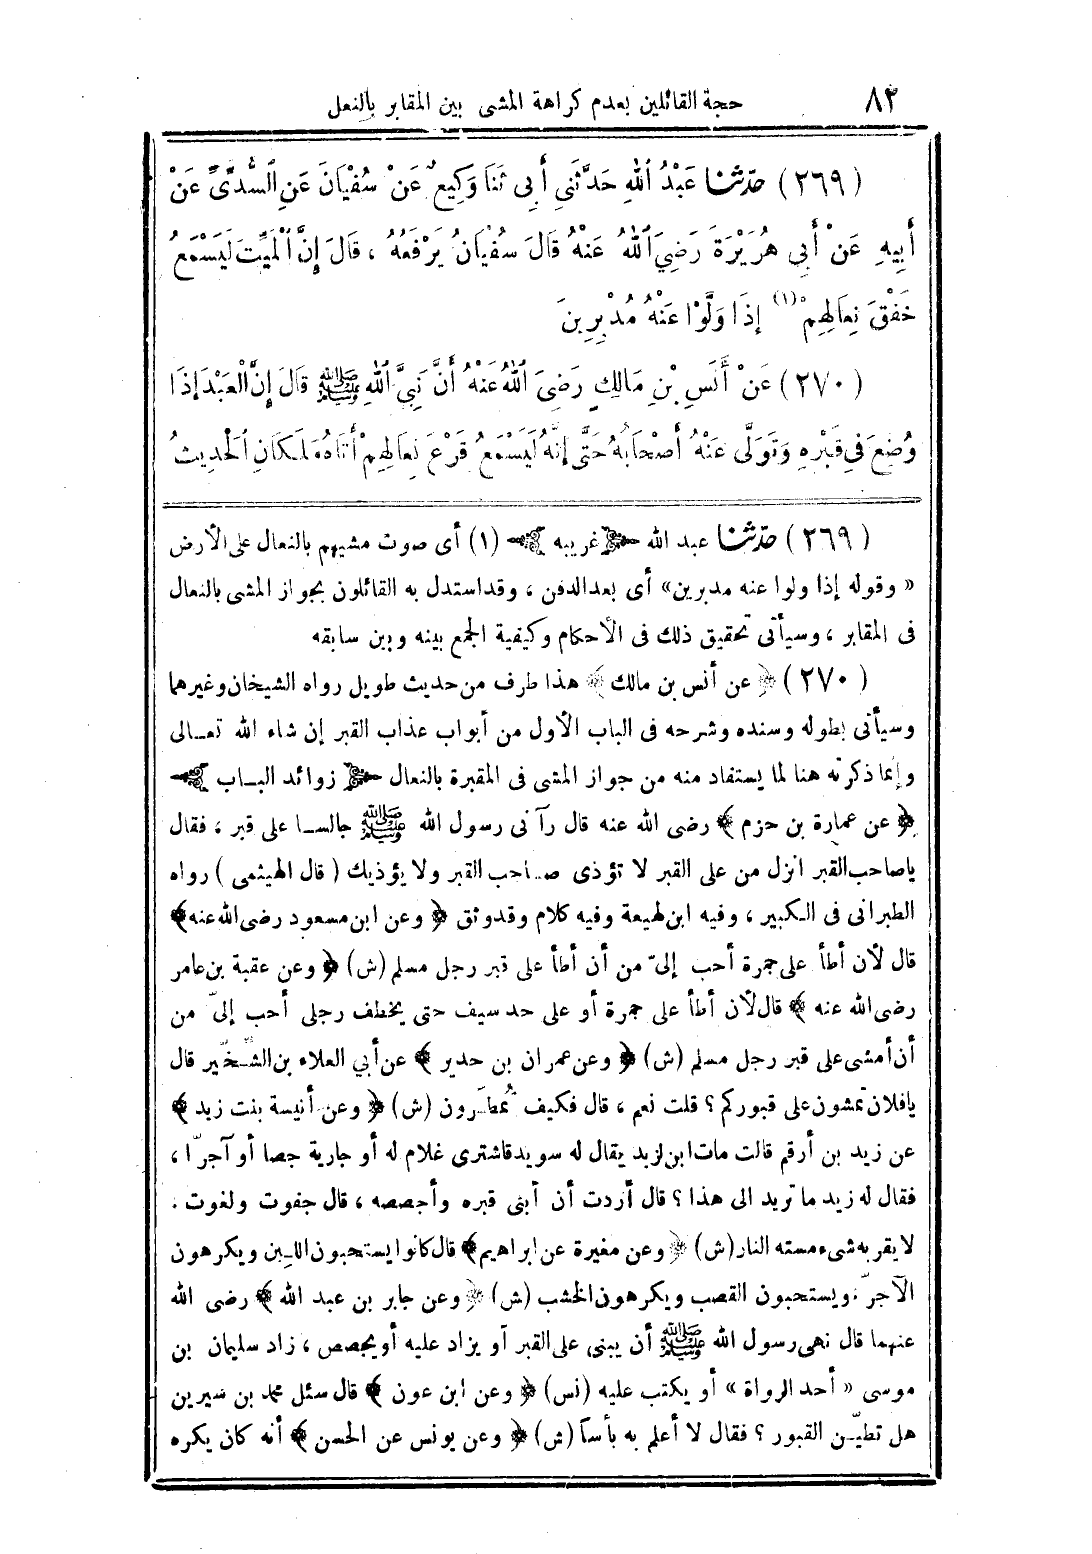 ٨٢ حجة القائلين بعدم كراهة المشى بين المقابر بالنعل
(٢٦٩) حدّثنا عَبْدُ اللهِ حَدَّثَنِي أَبِى ثَنَا وَكِيعٌ عَنْ سُفْيَانَ عَنِ السُّدِّىِّ عَنْ
أَبِيهِ عَنْ أَبِى هُرَيْرَةَ رَضِيَ اللهُ عَنْهُ قَالَ سُفْيَانُ يَرْفَعُهُ ، قَالَ إِنَّ الْمَيِّتَ لَيَسْمَعُ
خَفْقَ نِعَالِهِمْ (١) إِذَا وَلَّوْا عَنْهُ مُدْبِرِينَ
(٢٧٠) عَنْ أَنَسِ بْنِ مَالِكٍ رَضِىَ اللهُ عَنْهُ أَنَّ نَبِيَّ اللهِ ﷺ قَالَ إِنَّ الْعَبْدَ إِذَا
وُضِعَ فِى قَبْرِهِ وَتَوَلَّى عَنْهُ أَصْحَابُهُ حَتَّى إِنَّهُ لَيَسْمَعُ قَرْعَ نِعَالِهِمْ أَتَاهُ مَلَكَانِ الْحَدِيثُ
(٢٦٩) حدّثنا عبد الله ﴿غريبه﴾ (١) أى صوت مشيهم بالنعال على الأرض
« وقوله إذا ولوا عنه مدبرين» أى بعد الدفن ، وقد استدل به القائلون بجواز المشى بالنعال
فى المقابر ، وسيأتى تحقيق ذلك فى الأحكام وكيفية الجمع بينه وبين سابقه
(٢٧٠) ﴿ عن أنس بن مالك ﴾ هذا طرف من حديث طويل رواه الشيخان وغيرهما
وسيأتى بطوله وسنده وشرحه فى الباب الأول من أبواب عذاب القبر إن شاء الله تعالى
وإنما ذكرته هنا لما يستفاد منه من جواز المشى فى المقبرة بالنعال ﴿ زوائد الباب ﴾
﴿ عن عمارة بن حزم ﴾ رضى الله عنه قال رآنى رسول الله ﷺ جالسا على قبر ، فقال
ياصاحب القبر انزل من على القبر لا تؤذى صاحب القبر ولا يؤذيك ( قال الهيثمى ) رواه
الطبرانى فى الكبير ، وفيه ابن لهيعة وفيه كلام وقد وثق ﴿ وعن ابن مسعود رضى الله عنه ﴾
قال لأن أطأ على جمرة أحب إلىّ من أن أطأ على قبر رجل مسلم (ش) ﴿ وعن عقبة بن عامر
رضى الله عنه ﴾ قال لأن أطأ على جمرة أو على حد سيف حتى يخطف رجلى أحب إلىّ من
أن أمشى على قبر رجل مسلم (ش) ﴿ وعن عمران بن حدير ﴾ عن أبي العلاء بن الشخّير قال
يافلان تمشون على قبوركم ؟ قلت نعم ، قال فكيف تُمطَرون (ش) ﴿ وعن أنيسة بنت زيد ﴾
عن زيد بن أرقم قالت مات ابن لزيد يقال له سويد فاشترى غلام له أو جارية جصا أو آجرّا ،
فقال له زيد ما تريد الى هذا ؟ قال أردت أن أبنى قبره وأجصصه ، قال جفوت ولغوت .
لا يقربه شىء مسته النار (ش) ﴿ وعن مغيرة عن ابراهيم ﴾ قال كانوا يستحبون اللبن ويكرهون
الآجرّ ، ويستحبون القصب ويكرهون الخشب (ش) ﴿ وعن جابر بن عبد الله ﴾ رضى الله
عنهما قال نهى رسول الله ﷺ أن يبنى على القبر أو يزاد عليه أو يجصص ، زاد سليمان بن
موسى « أحد الرواة » أو يكتب عليه (نس) ﴿ وعن ابن عون ﴾ قال سئل محمد بن سيرين
هل تطيّن القبور ؟ فقال لا أعلم به بأسآ (ش) ﴿ وعن يونس عن الحسن ﴾ أنه كان يكره